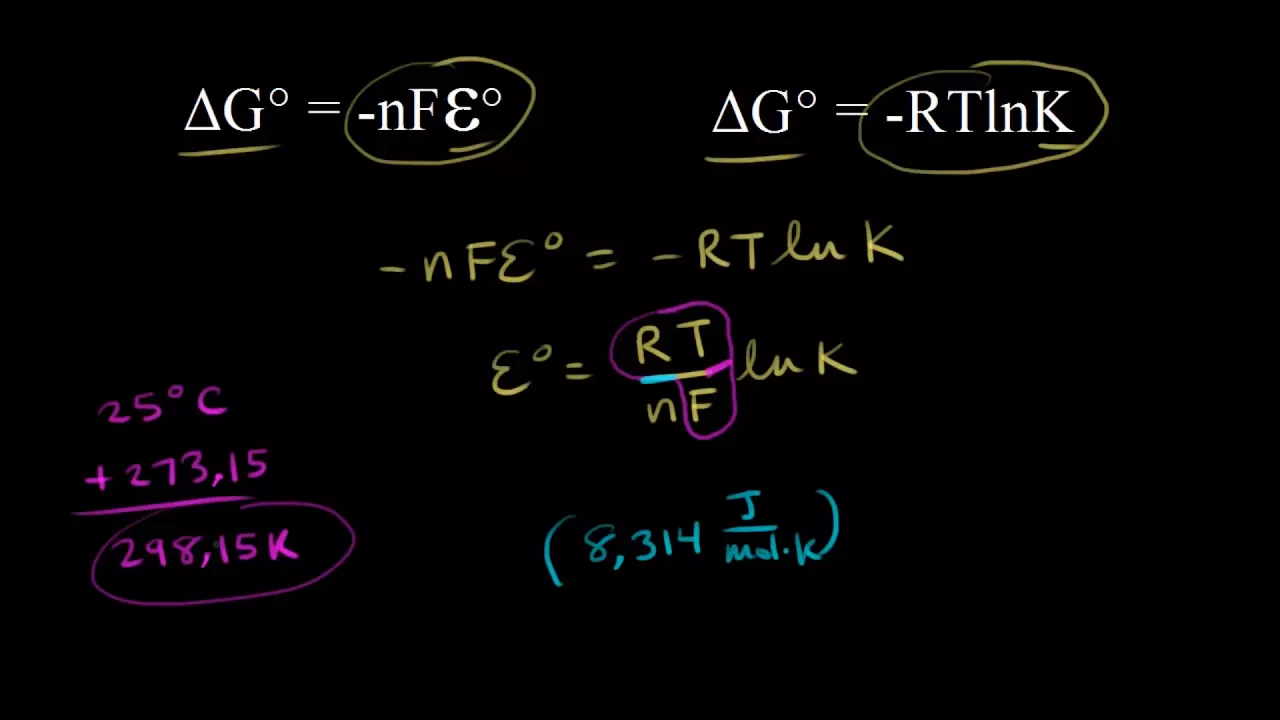 ΔG° = -nFε°
ΔG° = -RTlnK
-nFε° = -RT ln K
ε° = RT/nF ln K
25°C
+273,15
298,15K
(8,314 J/mol·K)